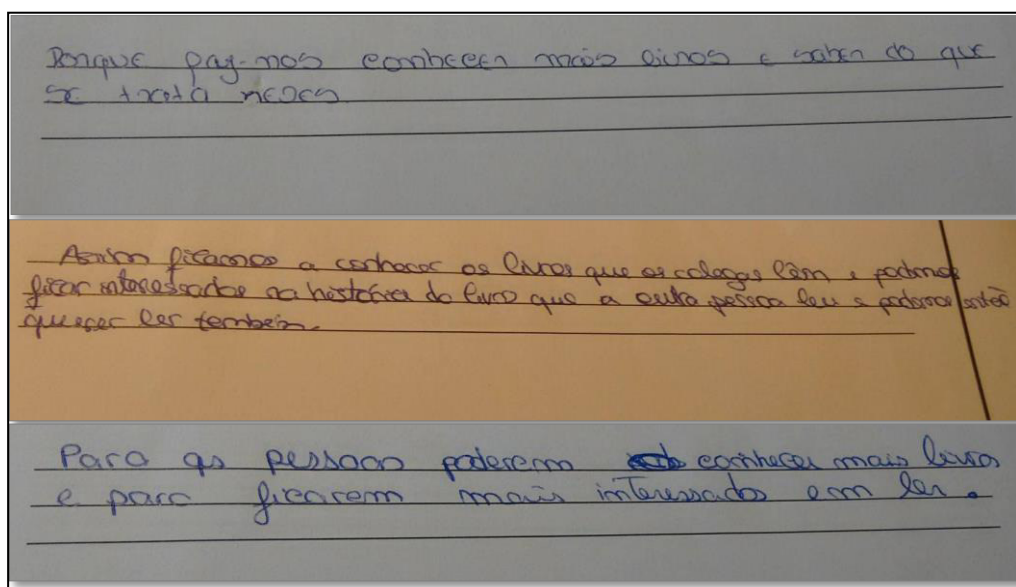 Porque faz-nos conhecer mais livros e saber do que
se trata neles
Assim ficamos a conhecer os livros que os colegas lêm e podemos
ficar interessados na história do livro que a outra pessoa leu e podemos então
querer ler também.
Para as pessoas poderem conhecer mais livros
e para ficarem mais interessados em ler.